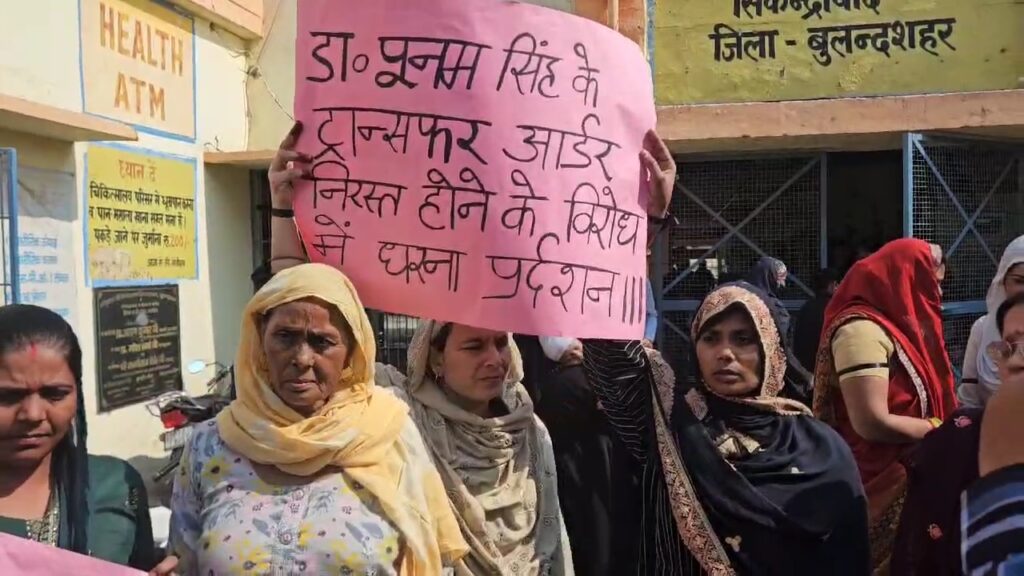 HEALTH
ATM
ध्यान दें
चिकित्सालय परिसर में धूम्रपान करना
व पान मसाला खाना सख्त मना है।
पकड़े जाने पर जुर्माना रु. 200/-
डा० पूनम सिंह के
ट्रान्सफर आर्डर
निरस्त होने के विरोध
में धरना प्रर्दशन।।।
सिकन्द्राबाद
जिला - बुलन्दशहर